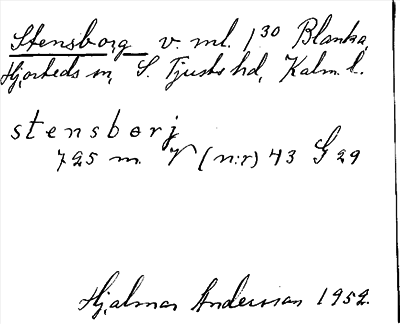 Stensborg v. ml. 1³⁰ Blanka,
Hjorteds sn, S. Tjusts hd, Kalm. l.
stensborj
725 m. V (n:r) 43 G 29
Hjalmar Andersson 1952.